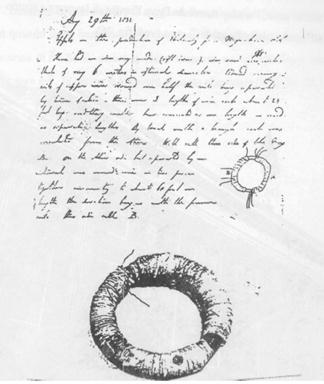 Aug 29th 1831
Expts on the production of Electricity from Magnetism etc
Have had an iron ring made (soft iron), iron round and inches
thick & ring 6 inches in external diameter. Wound many
coils of copper wire round one half the coils being separated
by twine & calico - there were 3 lengths of wire each about 24
feet long and they could be connected as one length or used
as separate lengths. By trial with a trough each was
insulated from the other. Will call this side of the ring
A. On the other side but separated by an
interval was wound wire in two pieces
together amounting to about 60 feet in
length the direction being as with the former
coils this side call B.